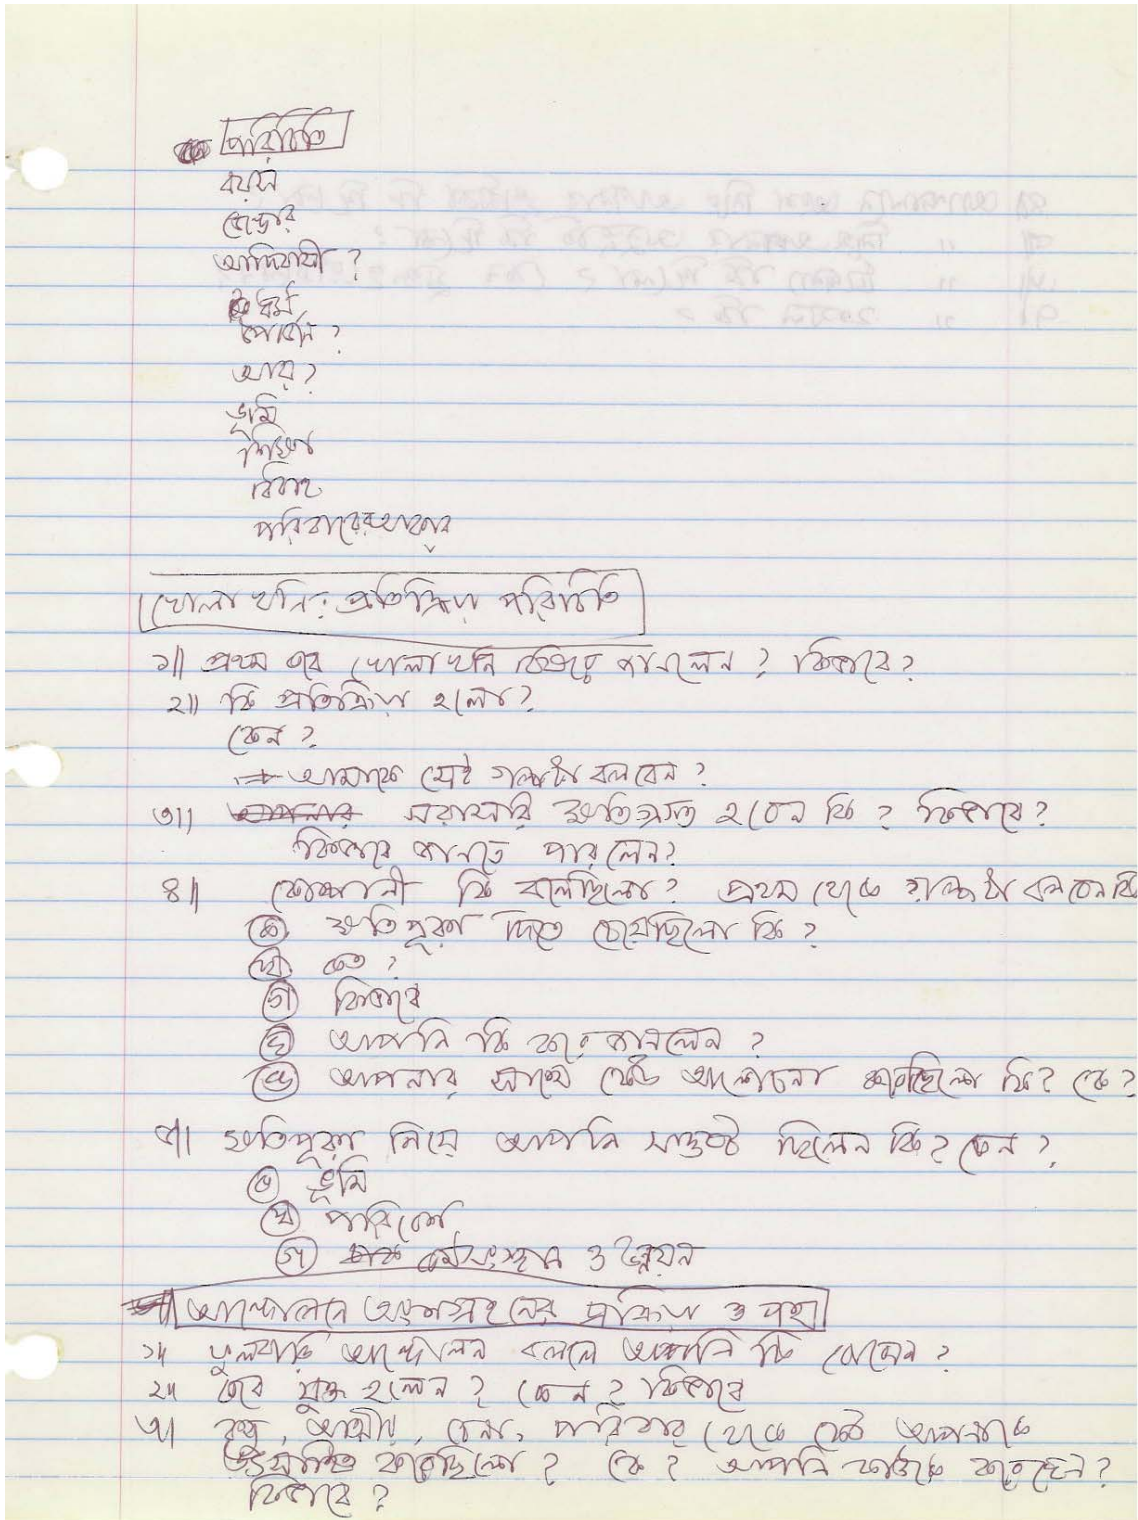 পরিচিতি
বয়স
জেন্ডার
আদিবাসী ?
ধর্ম
পেশা ?
আয় ?
ভূমি
শিক্ষা
বিবাহ
পরিবারের আকার
খোলা খনির প্রতিক্রিয়া পরিচিতি
১॥ প্রথম কবে খোলা খনি বিষয়ে জানলেন ? কিভাবে ?
২॥ কি প্রতিক্রিয়া হলো ?
কেন ?
আমাকে সেই গল্পটা বলবেন ?
৩॥ সরাসরি ক্ষতিগ্রস্ত হবেন কি ? কিভাবে ?
কিভাবে জানতে পারলেন ?
৪॥ কোম্পানী কি বলেছিলো ? প্রথম থেকে গল্পটা বলবেন কি
ক ক্ষতিপূরণ দিতে চেয়েছিলো কি ?
খ কত ?
গ কিভাবে
ঘ আপনি কি করে জানলেন ?
ঙ আপনার সাথে কেউ আলোচনা করেছিলো কি ? কে ?
৫॥ ক্ষতিপূরণ নিয়ে আপনি সন্তুষ্ট ছিলেন কি ? কেন ?
ক ভূমি
খ পরিবেশ
গ কর্মসংস্থান ও উন্নয়ন
আন্দোলনে অংশগ্রহনের প্রক্রিয়া ও পন্থা
১॥ ফুলবাড়ি আন্দোলন বললে আপনি কি বোঝেন ?
২॥ কবে যুক্ত হলেন ? কেন ? কিভাবে
৩॥ বন্ধু, আত্মীয়, চেনা, পরিবার থেকে কেউ আপনাকে
উৎসাহিত করেছিলো ? কে ? আপনি কাউকে করেছেন ?
কিভাবে ?